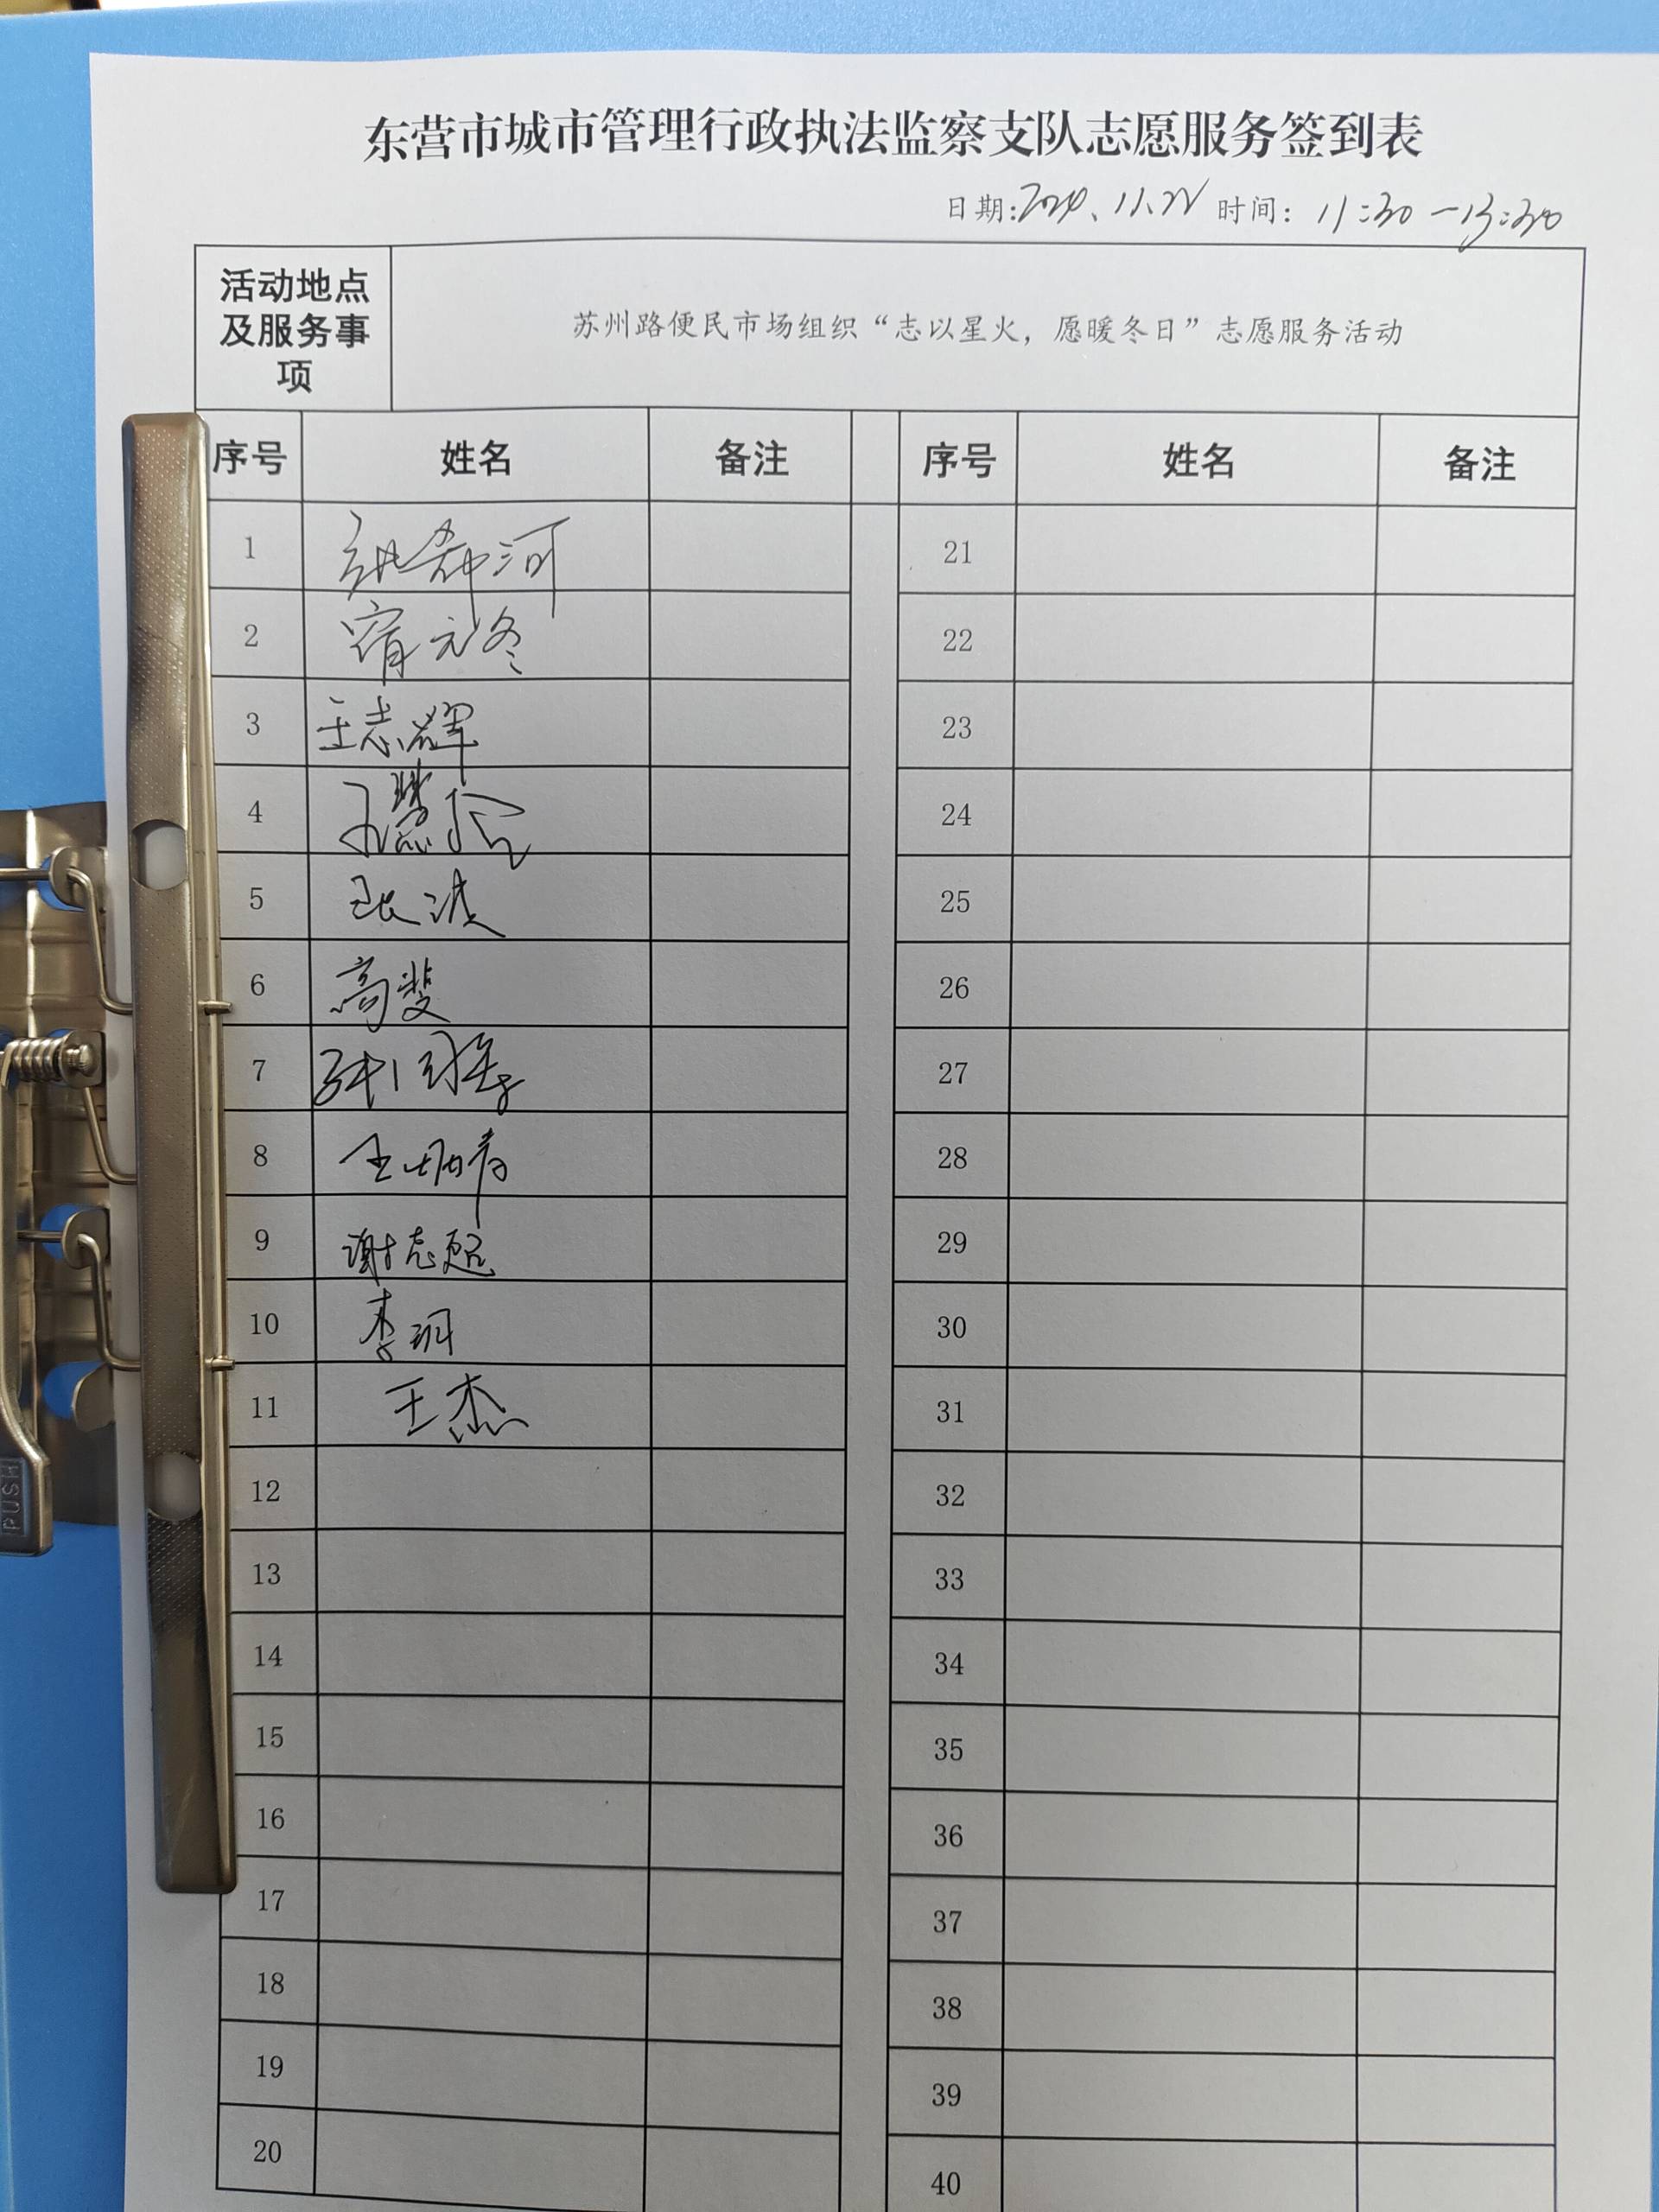 东营市城市管理行政执法监察支队志愿服务签到表
日期:2024、11、22 时间: 11:30 一13:30
活动地点及服务事项
苏州路便民市场组织“志以星火，愿暖冬日”志愿服务活动
序号 姓名 备注 序号 姓名 备注
1 河 21
2 宿元冬 22
3 王志辉 23
4 王慧 24
5 张波 25
6 高斐 26
7 27
8 王 29
9 谢志超 29
10 李玥 30
11 王杰 31
12 32
13 33
14 34
15 35
16 36
17 37
18 38
19 39
20 40
PUSH